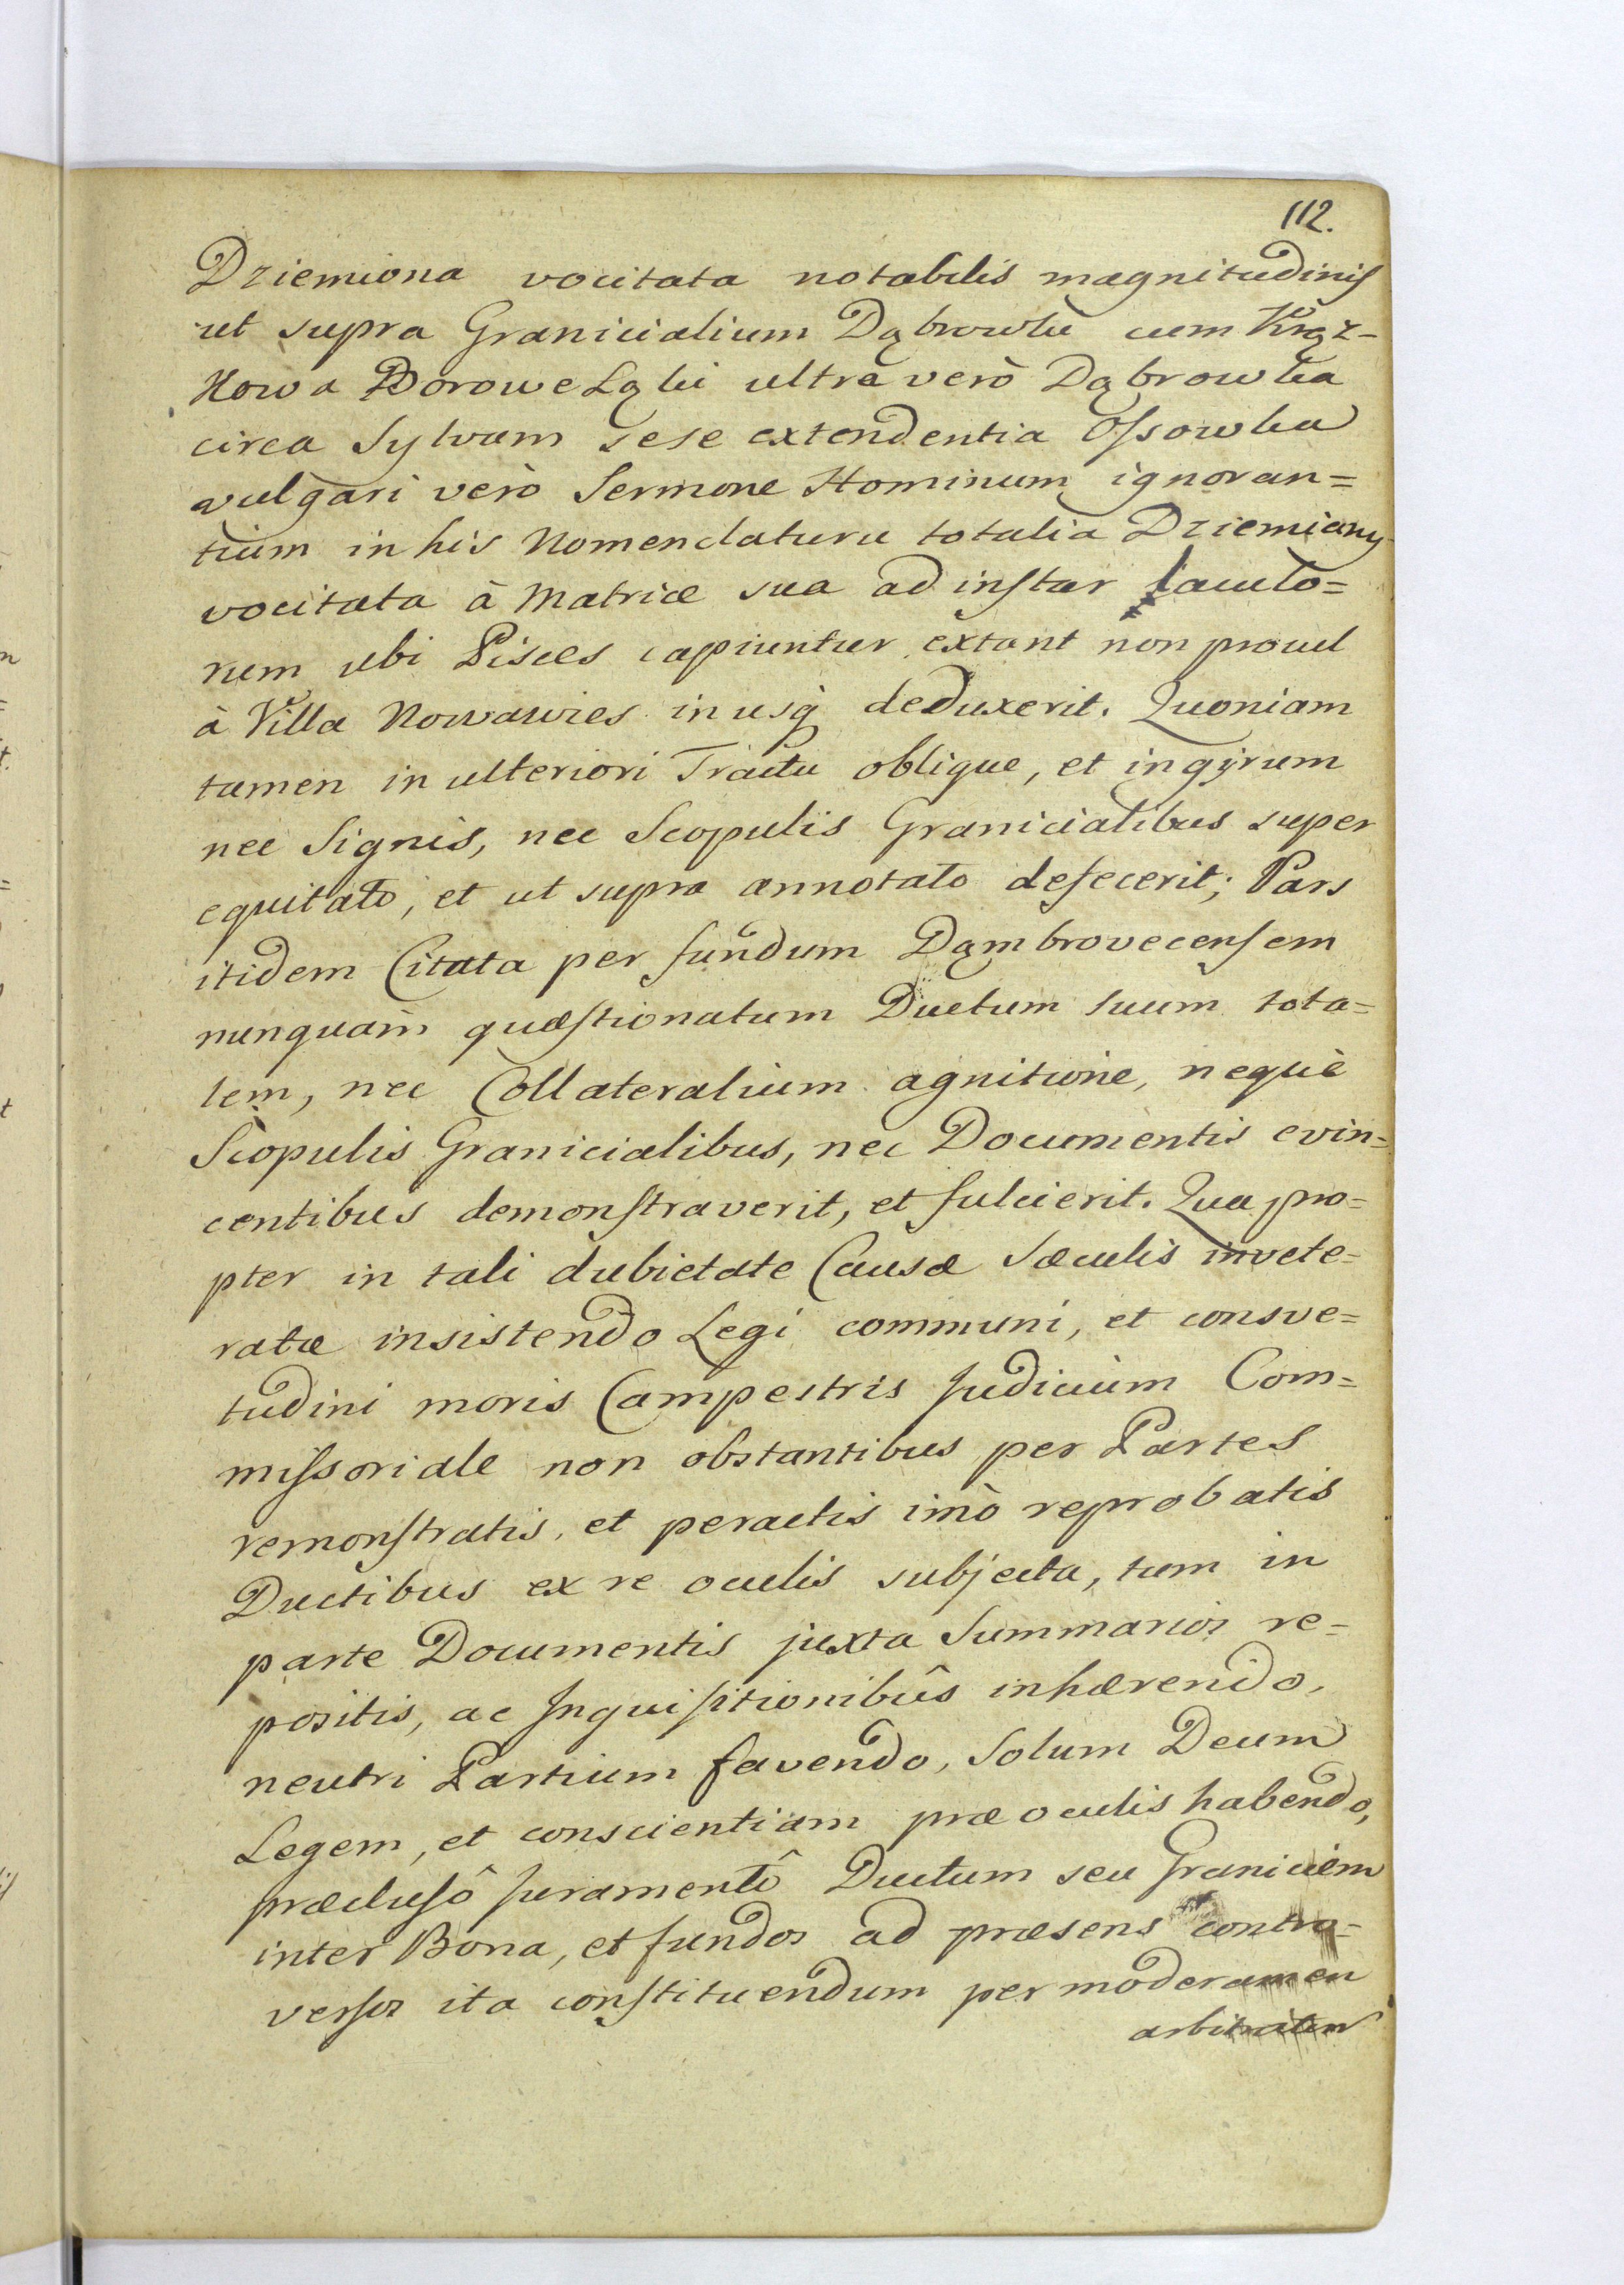 112.
Dziemiona vocitata notabilis magnitudinis
ut supra Granicialium Dąbrowku cum Krąz-
kowa Borowe Łąki ultra verò Dąbrowka
circa Sylvam sese extendentia Ossowka
vulgari verò Sermone Hominum ignoran=
tium in his Nomenclaturu totalia Dziemiany
vocitata à Matrice sua ad instar laculo=
rum ubi Pisces capiuntur extant non procul
à Villa Nowawies in usq deduxerit. Quoniam
tamen in ulteriori Tractu oblique, et in gyrum
nec Signis, nec Scopulis Granicialibus super
equitato, et ut supra annotato defecerit; Pars
itidem Citata per fundum Dąmbrovecensem
nunquam quæstionatum Ductum suum tota=
lem, nec Collateralium agnitione, nequè
Scopulis Granicialibus, nec Documentis evin=
centibus demonstraverit, et fulcierit. Qua pro=
pter in tali dubietate Causæ Sæculis invete=
ratæ insistendo Legi communi, et consve=
tudini moris Campestris Judicium Com=
missoriale non obstantibus per Partes
remonstratis, et peractis imò reprobatis
Ductibus ex re oculis subjecta, tum in
parte Documentis juxta Summarios re=
positis, ac Inquisitionibûs inhærendo,
neutri Partium favendo, Solum Deum
Legem, et conscientiam præ oculis habendo,
præclusô Juramentô Ductum seu Graniciem
inter Bona, et fundos ad præsens contro=
versos ita constituendum per moderamen
arbitratur